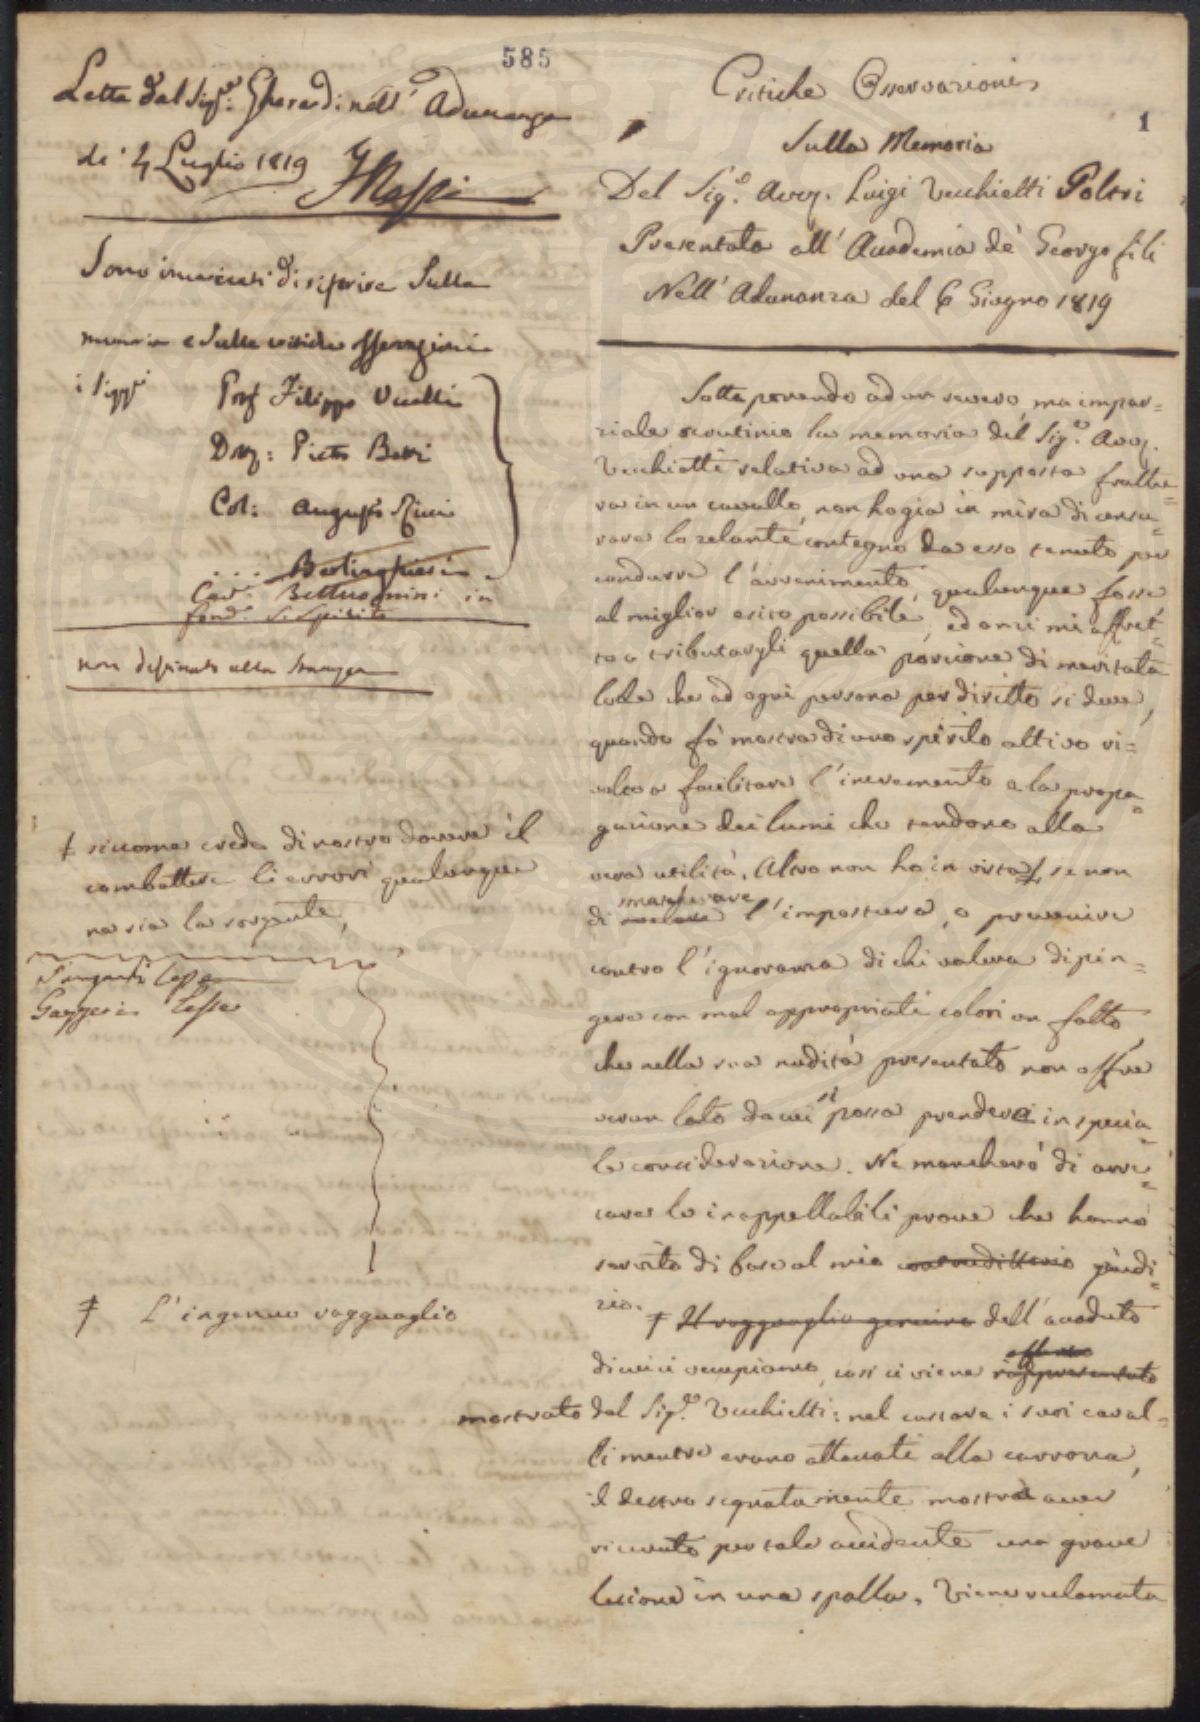 585
1
Letta dal Sig.e Gherardi nell' Adunanza
de' 4 Luglio 1819
Sono incaricati di riferire sulla
memoria e sulle critiche osservazioni
i Sigg.i Prof Filippo Uccelli
Dott: Pietro Betti
Col: Augusto Ricci
... Berlinghieri
Cav.
non destinata alla stampa
‡ siccome credo di nostro dovere il
combattere li errori qualunque
ne sia la sorgente,
Gazzeri Lesse
‡ L'ingenuo ragguaglio
mostrato
Critiche Osservazioni
Sulla Memoria
Del Sig.e Avv. Luigi Vecchietti Poltri
Presentata all'Accademia de' Georgofili
Nell'Adunanza del 6 Giugno 1819
Sottoponendo ad un severo, ma impar=
ziale scrutinio la memoria del Sig.e Avv.
Vecchietti relativa ad una supposta frattu=
ra in un cavallo, non ho già in mira di censu=
rare lo zelante contegno da esso tenuto per
condurre l'avvenimento, qualunque fosse
al miglior esito possibile, ed anzi mi affret=
to a tributargli quella porzione di meritata
lode che ad ogni persona per diritto si deve,
quando fà mostra di uno spirito attivo ri=
volto a facilitare l'incremento e la propa=
gazione dei lumi che tendono alla
vera utilità. Altro non ho in vista ‡, se non
smascherare
di l'impostura, o prevenire
contro l'ignoranza di chi voleva dipin=
gere con mal appropriati colori un fatto,
che nella sua nudità presentato non offre
verun lato da cui si possa prendere in specia=
le considerazione. Ne mancherò di arre=
care le inappellabili prove che hanno
servito di base al mio contradittorio giudi=
zio.
‡ Il ragguaglio genuino dell'accaduto
di cui ci occupiamo, così ci viene rappresentato
dal Sig.e Vecchietti: nel cascare i suoi caval=
li mentre erano attaccati alla carrozza,
il destro segnatamente mostrò aver
ricevuto per tale accidente una grave
lesione in una spalla. Viene reclamata